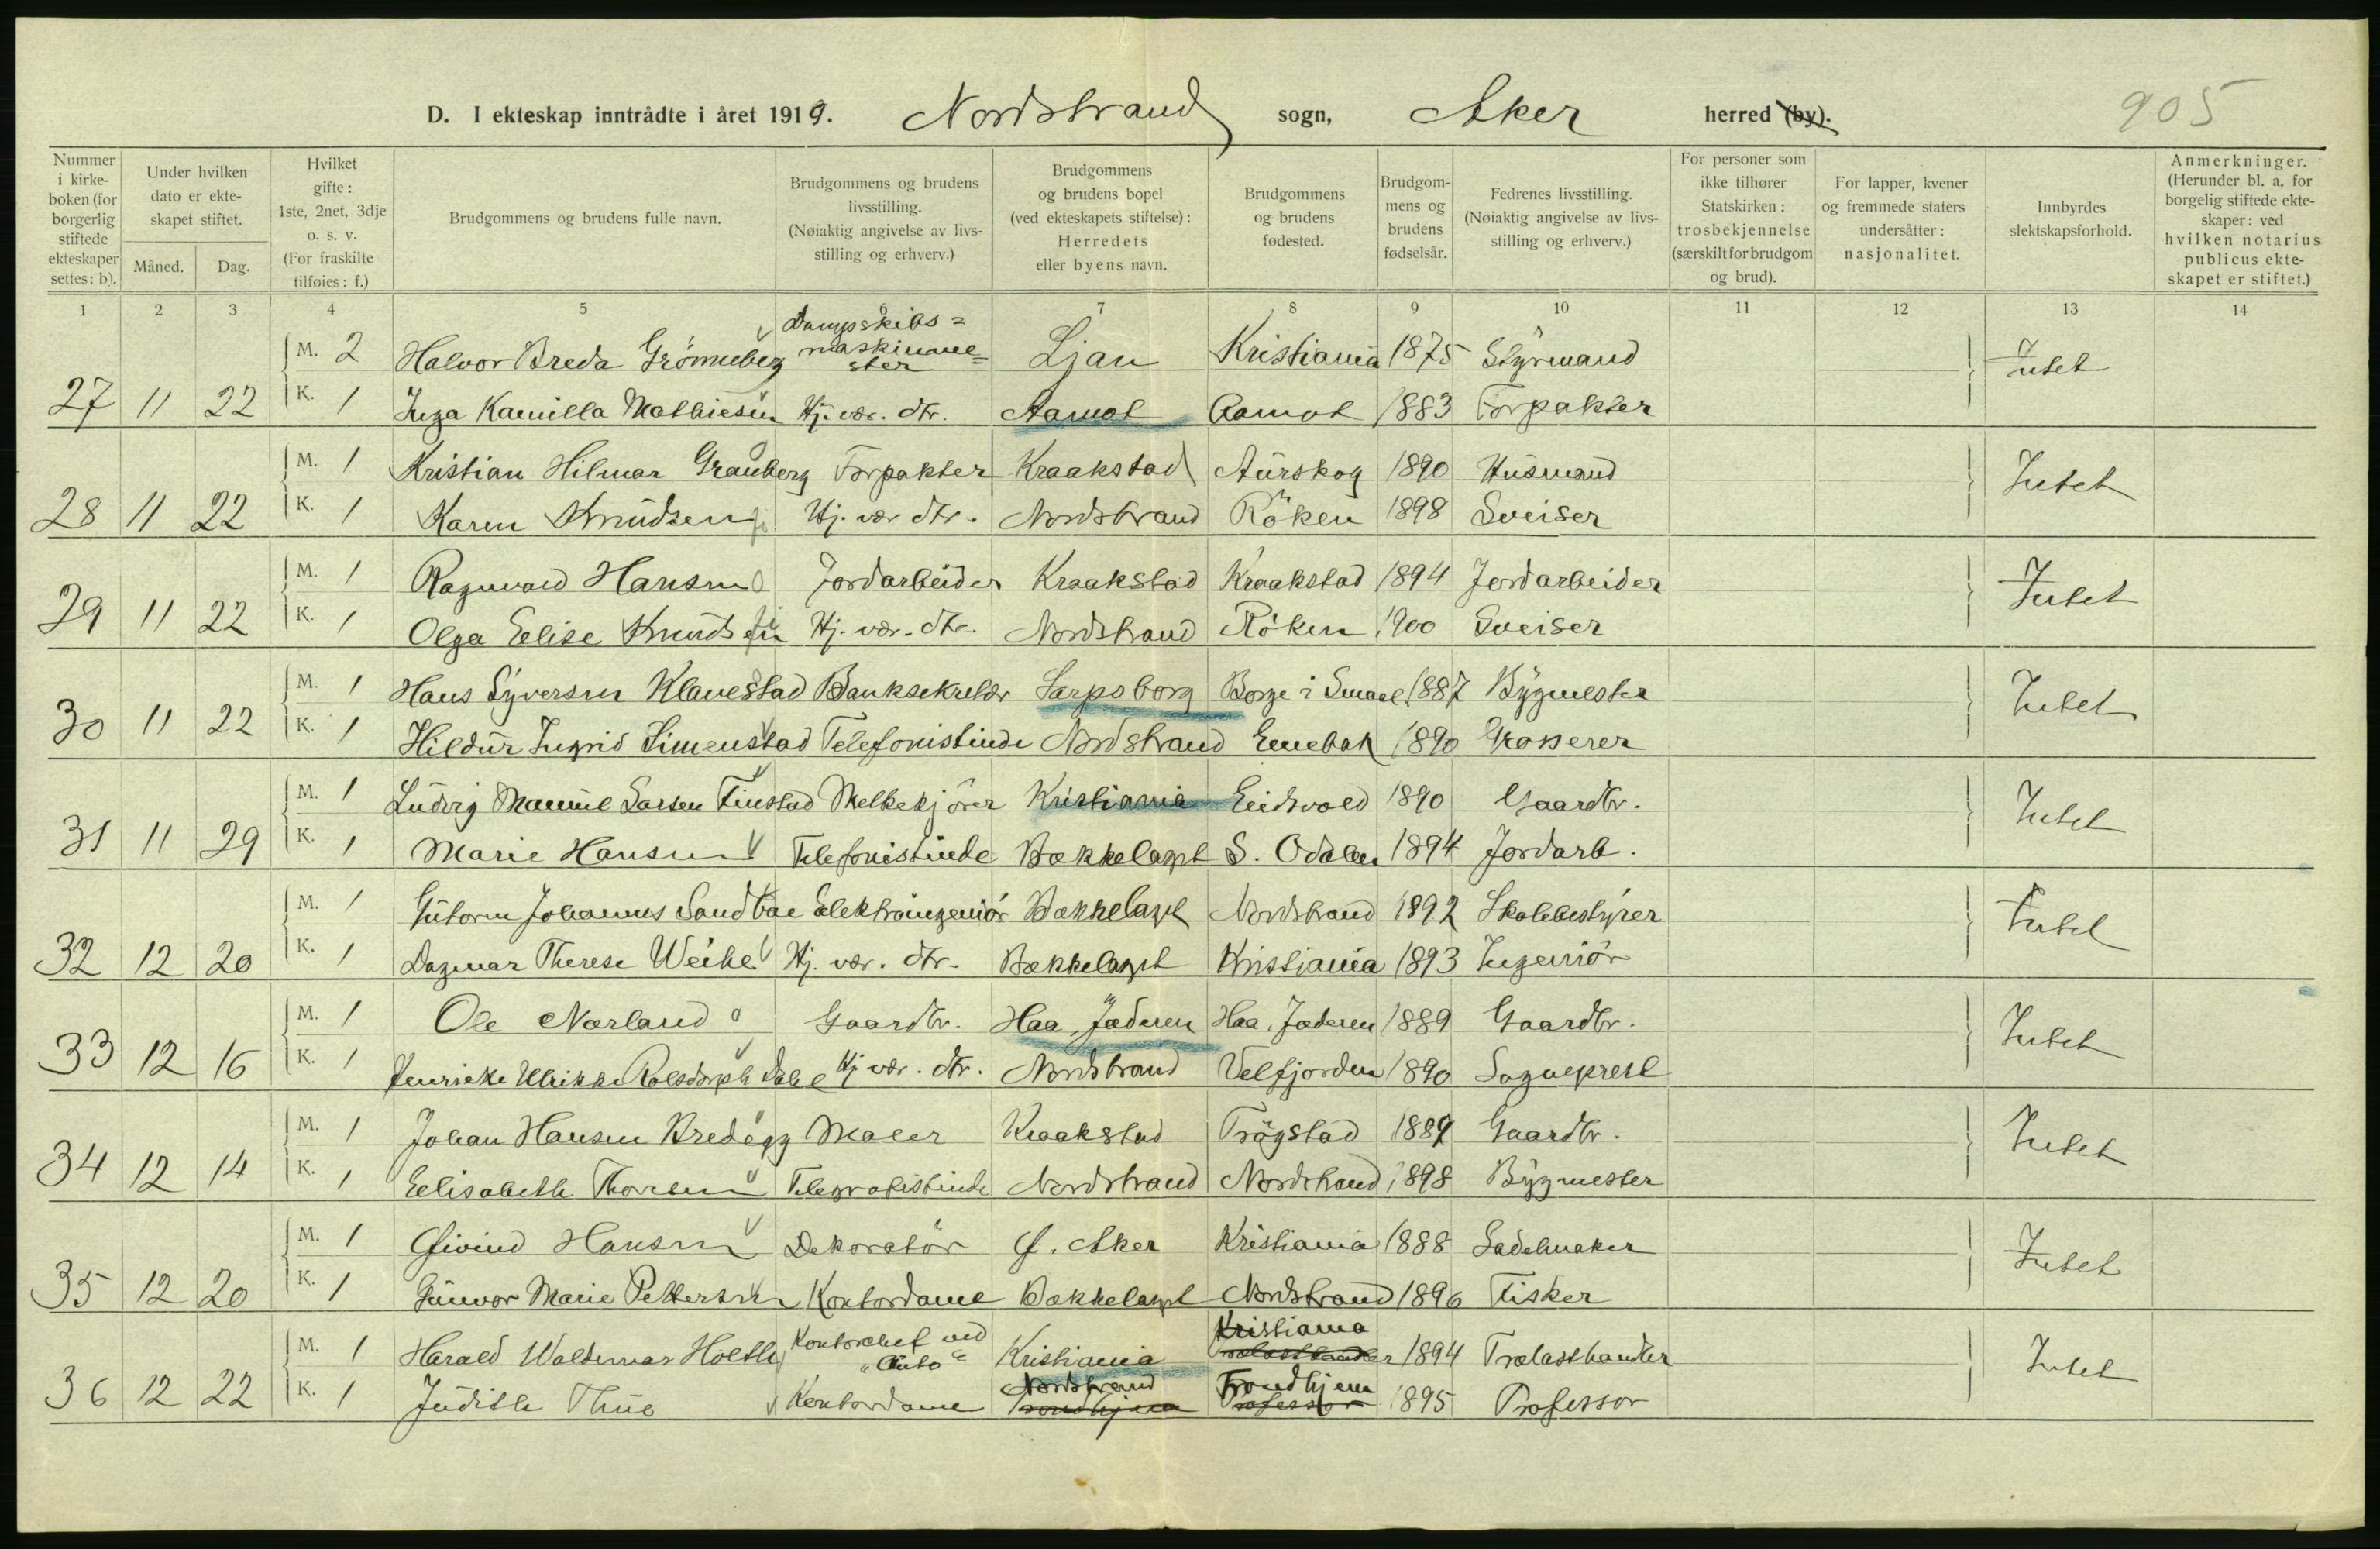 D. I ekteskap inntrådte i året 1919. Nordstrand sogn, Aker herred (by). 905
Nummer i kirkeboken (for borgerlig stiftede ekteskaper settes: b). Under hvilken dato er ekteskapet stiftet. Måned. Dag. Hvilket gifte: 1ste, 2net, 3dje o. s. v. (For fraskilte tilføies: f.) Brudgommens og brudens fulle navn. Brudgommens og brudens livsstilling. (Nøiaktig angivelse av livsstilling og erhverv.) Brudgommens og brudens bopel (ved ekteskapets stiftelse): Herredets eller byens navn. Brudgommens og brudens fødested. Brudgommens og brudens fødselsår. Fedrenes livsstilling. (Nøiaktig angivelse av livsstilling og erhverv.) For personer som ikke tilhører Statskirken: trosbekjennelse (særskilt for brudgom og brud). For lapper, kvener og fremmede staters undersåtter: nasjonalitet. Innbyrdes slektskapsforhold. Anmerkninger. (Herunder bl. a. for borgelig stiftede ekteskaper: ved hvilken notarius publicus ekteskapet er stiftet.)
1 2 3 4 5 6 7 8 9 10 11 12 13 14
M. 2 Halvor Breda Grönneberg Dampskibs=maskinme=ster Ljan Kristiania 1875 Styrmand Intet
27 11 22 K. 1 Inga Kamilla Mathiesen Hj. vær. dtr. Aamot Aamot 1883 Forpakter
M. 1 Kristian Hilmar Granberg Forpakter Kraakstad Aurskog 1890 Husmand Intet
28 11 22 K. 1 Karen Knudsen Hj. vær dtr. Nordstrand Röken 1898 Sveiser
M. 1 Ragnvald Hansen Jordarbeider Kraakstad Kraakstad 1894 Jordarbeider Intet
29 11 22 K. 1 Olga Elise Knudsen Hj. vær. dtr. Nordstrand Röken 1900 Sveiser
M. 1 Hans Syversen Klavestad Banksekretær Sarpsborg Borge i Smaal. 1887 Bygmester Intet
30 11 22 K. 1 Hildur Ingrid Simenstad Telefonistinde Nordstrand Enebak 1890 Grosserer
M. 1 Ludvig Manuel Larsen Finstad Melkekjörer Kristiania Eidsvold 1890 Gaardbr. Intet
31 11 29 K. 1 Marie Hansen Telefonistinde Bækkelaget S. Odalen 1894 Jordarb.
M. 1 Gutorm Johannes Sandbæ Elektroingeniör Bækkelaget Nordstrand 1892 Skolebestyrer Intet
32 12 20 K. 1 Dagmar Therese Weihe Hj. vær. dtr. Bækkelaget Kristiania 1893 Ingeniör
M. 1 Ole Nærland Gaardbr. Haa, Jæderen Haa, Jæderen 1889 Gaardbr. Intet
33 12 16 K. 1 Henrieke Ulrikke Rolsdorph Dahl Hj vær. dtr. Nordstrand Velfjorden 1890 Sogneprest
M. 1 Johan Hansen Bredegg Maler Kraakstad Trögstad 1889 Gaardbr. Intet
34 12 14 K. 1 Elisabeth Thoresen Telegrafistinde Nordstrand Nordstrand 1898 Bygmester
M. 1 Øivind Hansen Dekoratör Ø. Aker Kristiania 1888 Sadelmaker Intet
35 12 20 K. 1 Gunvor Marie Pettersen Kontordame Bækkelaget Nordstrand 1896 Fisker
M. 1 Harald Waldemar Holth Kontorchef ved "Auto" Kristiania Kristiania 1894 Trælasthandler Intet
36 12 22 K. 1 Judith Thue Kontordame Nordstrand Trondhjem 1895 Professor